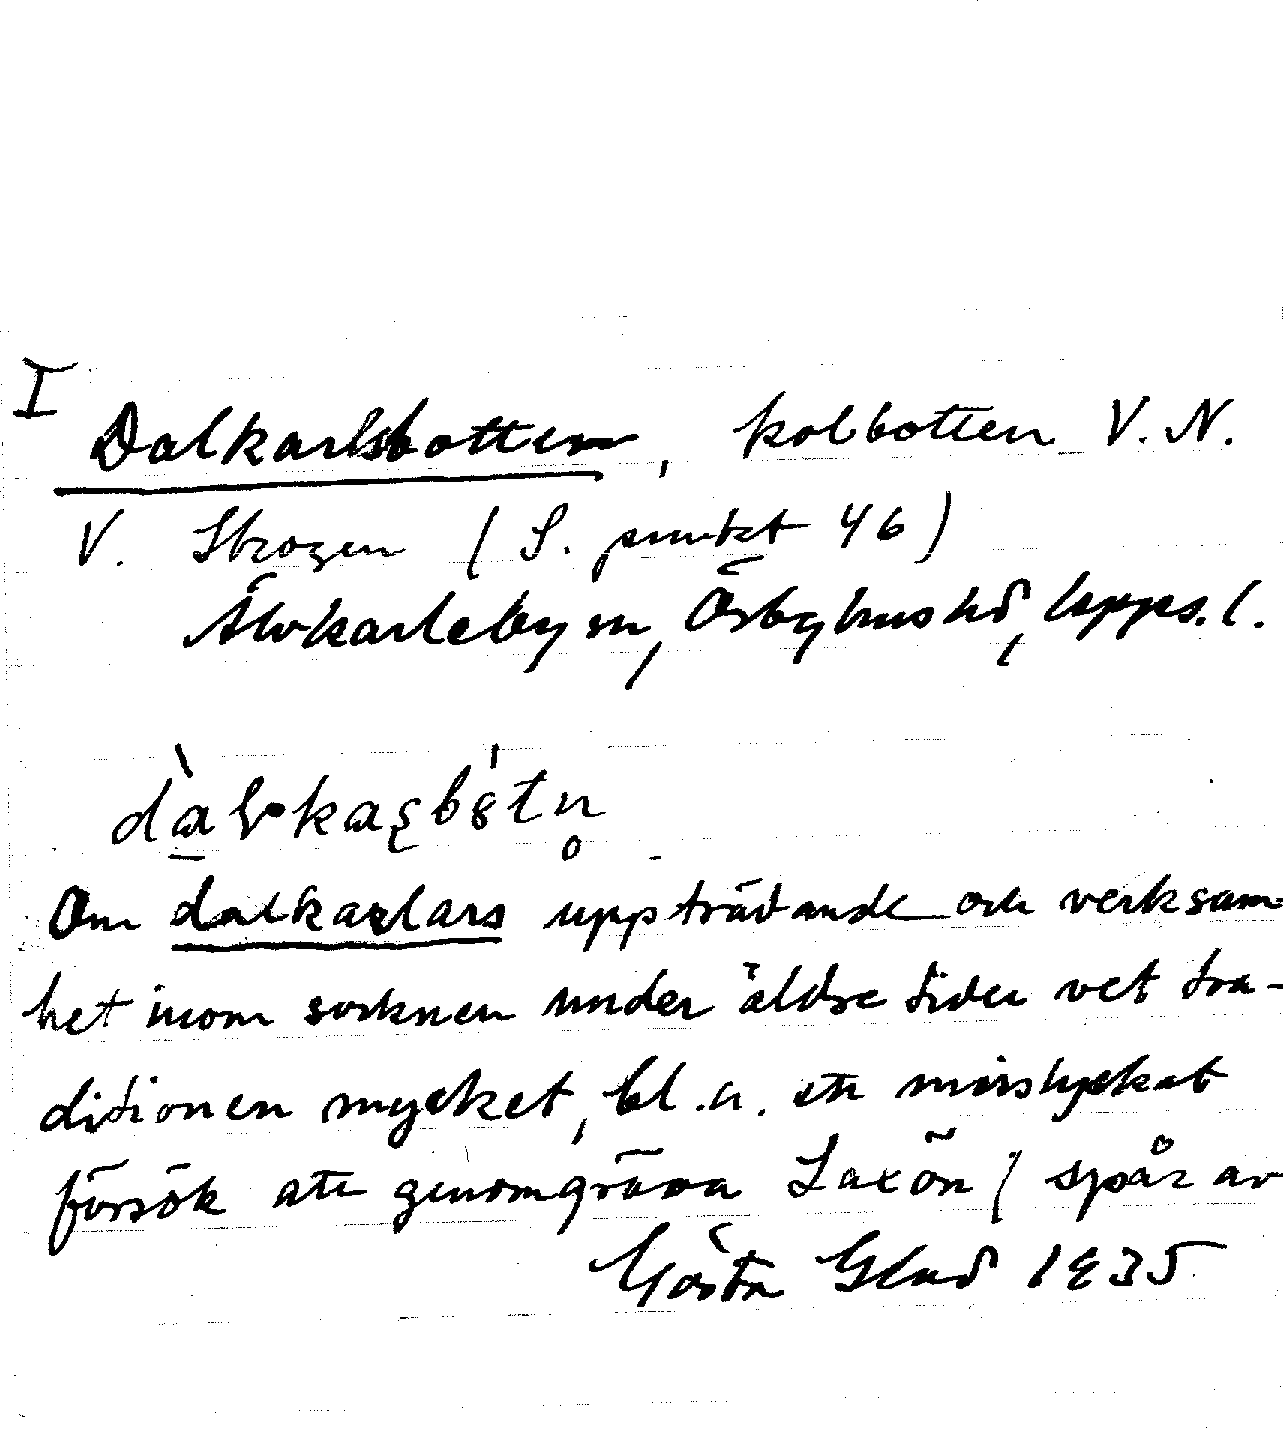 I
Dalkarlsbotten, kolbotten V.N.
V. (S. punkt 46)
Älvkarleby sn, Örbyhus hd, Upps. l.
Om dalkarlars uppträdande och verksam-
het inom socknen under äldre tider vet tra-
ditionen mycket, bl.a. ett misslyckat
försök att genomgräva Laxön (spår av
Gösta Glad 1935